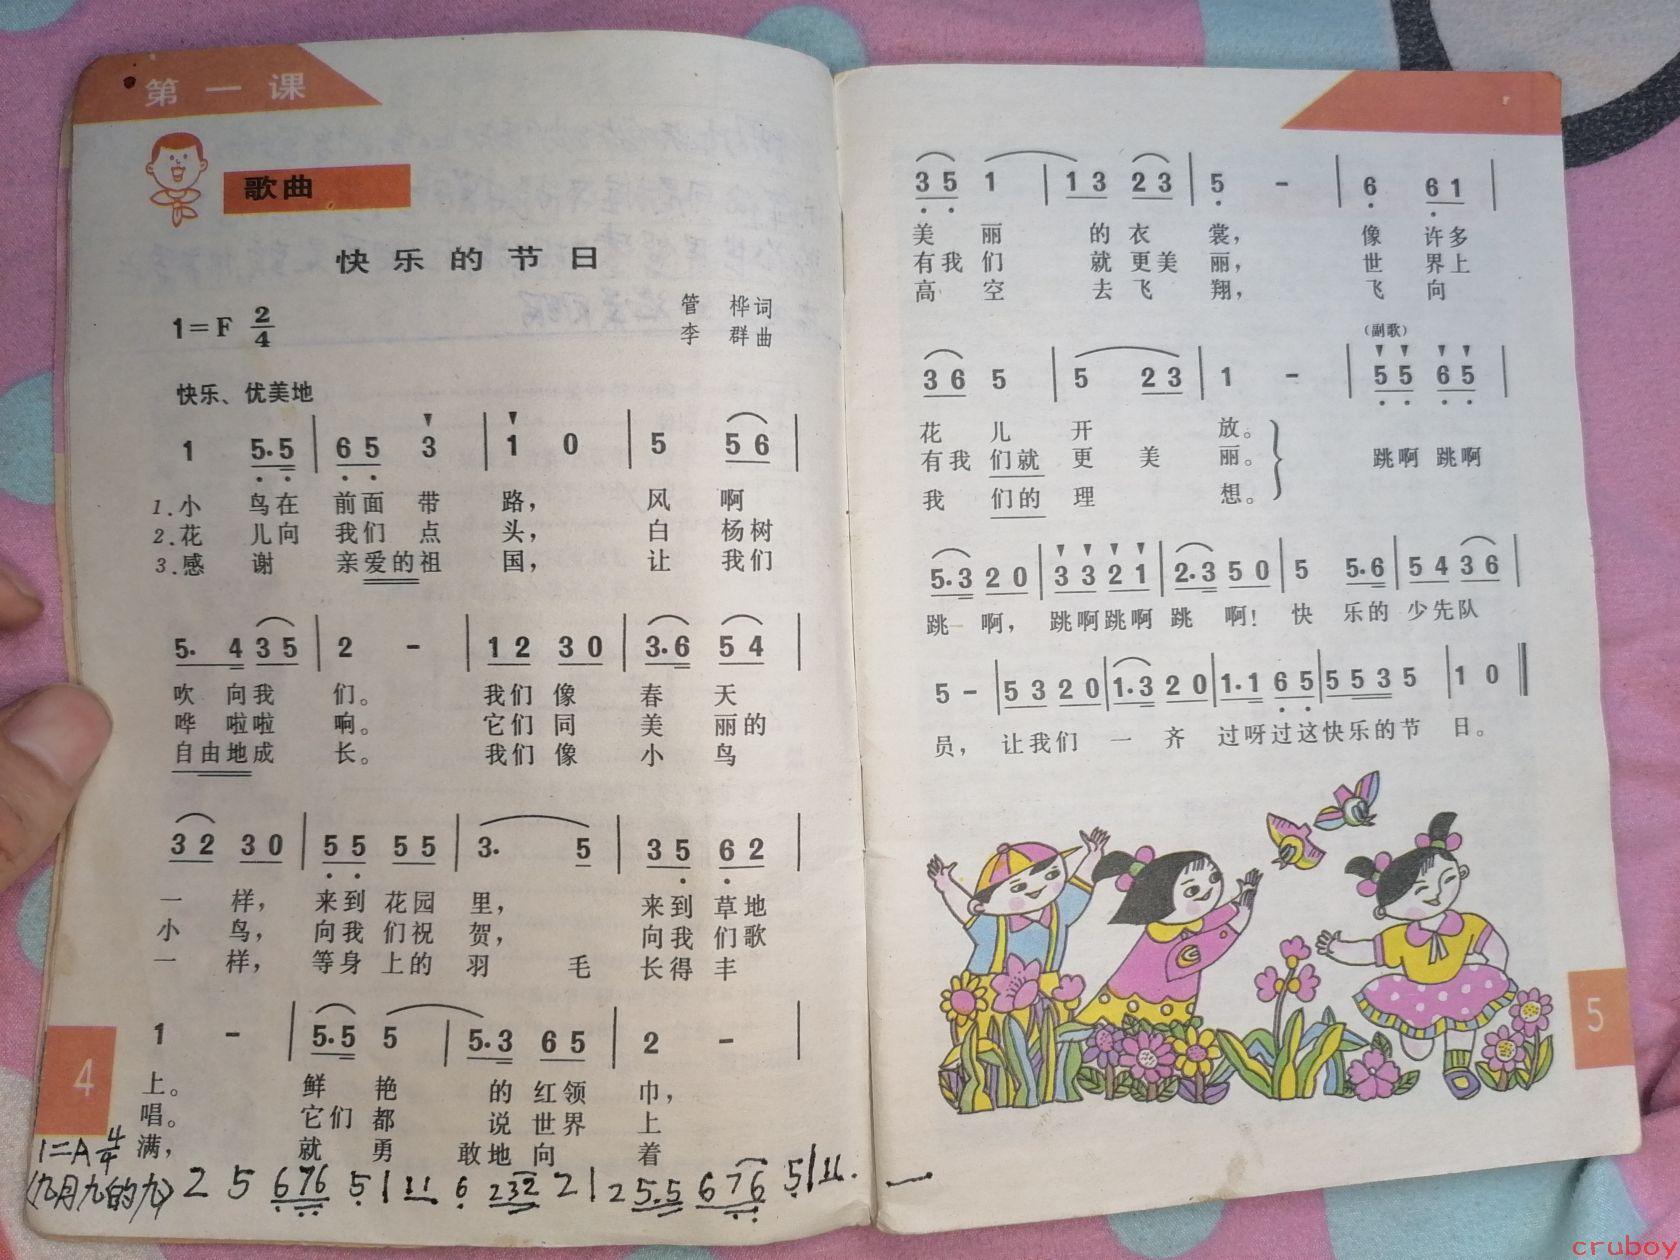 第一课
歌曲
快乐的节日
管 桦词
李 群曲
1=F 2/4
快乐、优美地
1 5·5 | 6 5 3 | 1 0 | 5 5 6 |
1.小 鸟在 前面 带 路， 风 啊
2.花 儿向 我们 点 头， 白 杨树
3.感 谢 亲爱的祖 国， 让 我们
5· 4 3 5 | 2 - | 1 2 3 0 | 3·6 5 4 |
吹 向我 们。 我们 像 春 天
哗 啦啦 响。 它们 同 美 丽的
自由地成 长。 我们 像 小 鸟
3 2 3 0 | 5 5 5 5 | 3· 5 | 3 5 6 2 |
一 样， 来到 花园 里， 来到 草地
小 鸟， 向我 们祝 贺， 向我 们歌
一 样， 等身 上的 羽 毛 长得 丰
1 - | 5·5 5 | 5·3 6 5 | 2 - |
上。 鲜 艳 的 红领 巾，
唱。 它们 都 说 世界 上
满， 就 勇 敢地 向 着
4
1=A 4/4
(九月九的九) 2 5 6 7 6 5 | 1 1 6 2 3 2 2 | 2 5·5 6 7 6 5 | 1 1. —
3 5 1 | 1 3 2 3 | 5 - | 6 6 1 |
美 丽 的 衣 裳， 像 许多
有我 们 就 更美 丽， 世 界上
高 空 去 飞 翔， 飞 向
(副歌)
3 6 5 | 5 2 3 | 1 - | 5 5 6 5 |
花 儿 开 放。
有我 们就 更 美 丽。 跳啊 跳啊
我 们的 理 想。
5·3 2 0 | 3 3 2 1 | 2·3 5 0 | 5 5·6 | 5 4 3 6 |
跳 啊， 跳啊跳啊 跳 啊！ 快 乐的 少先队
5 - | 5 3 2 0 | 1·3 2 0 | 1·1 6 5 | 5 5 3 5 | 1 0 ‖
员， 让我们 一 齐 过呀过这快乐的节 日。
5
cruboy